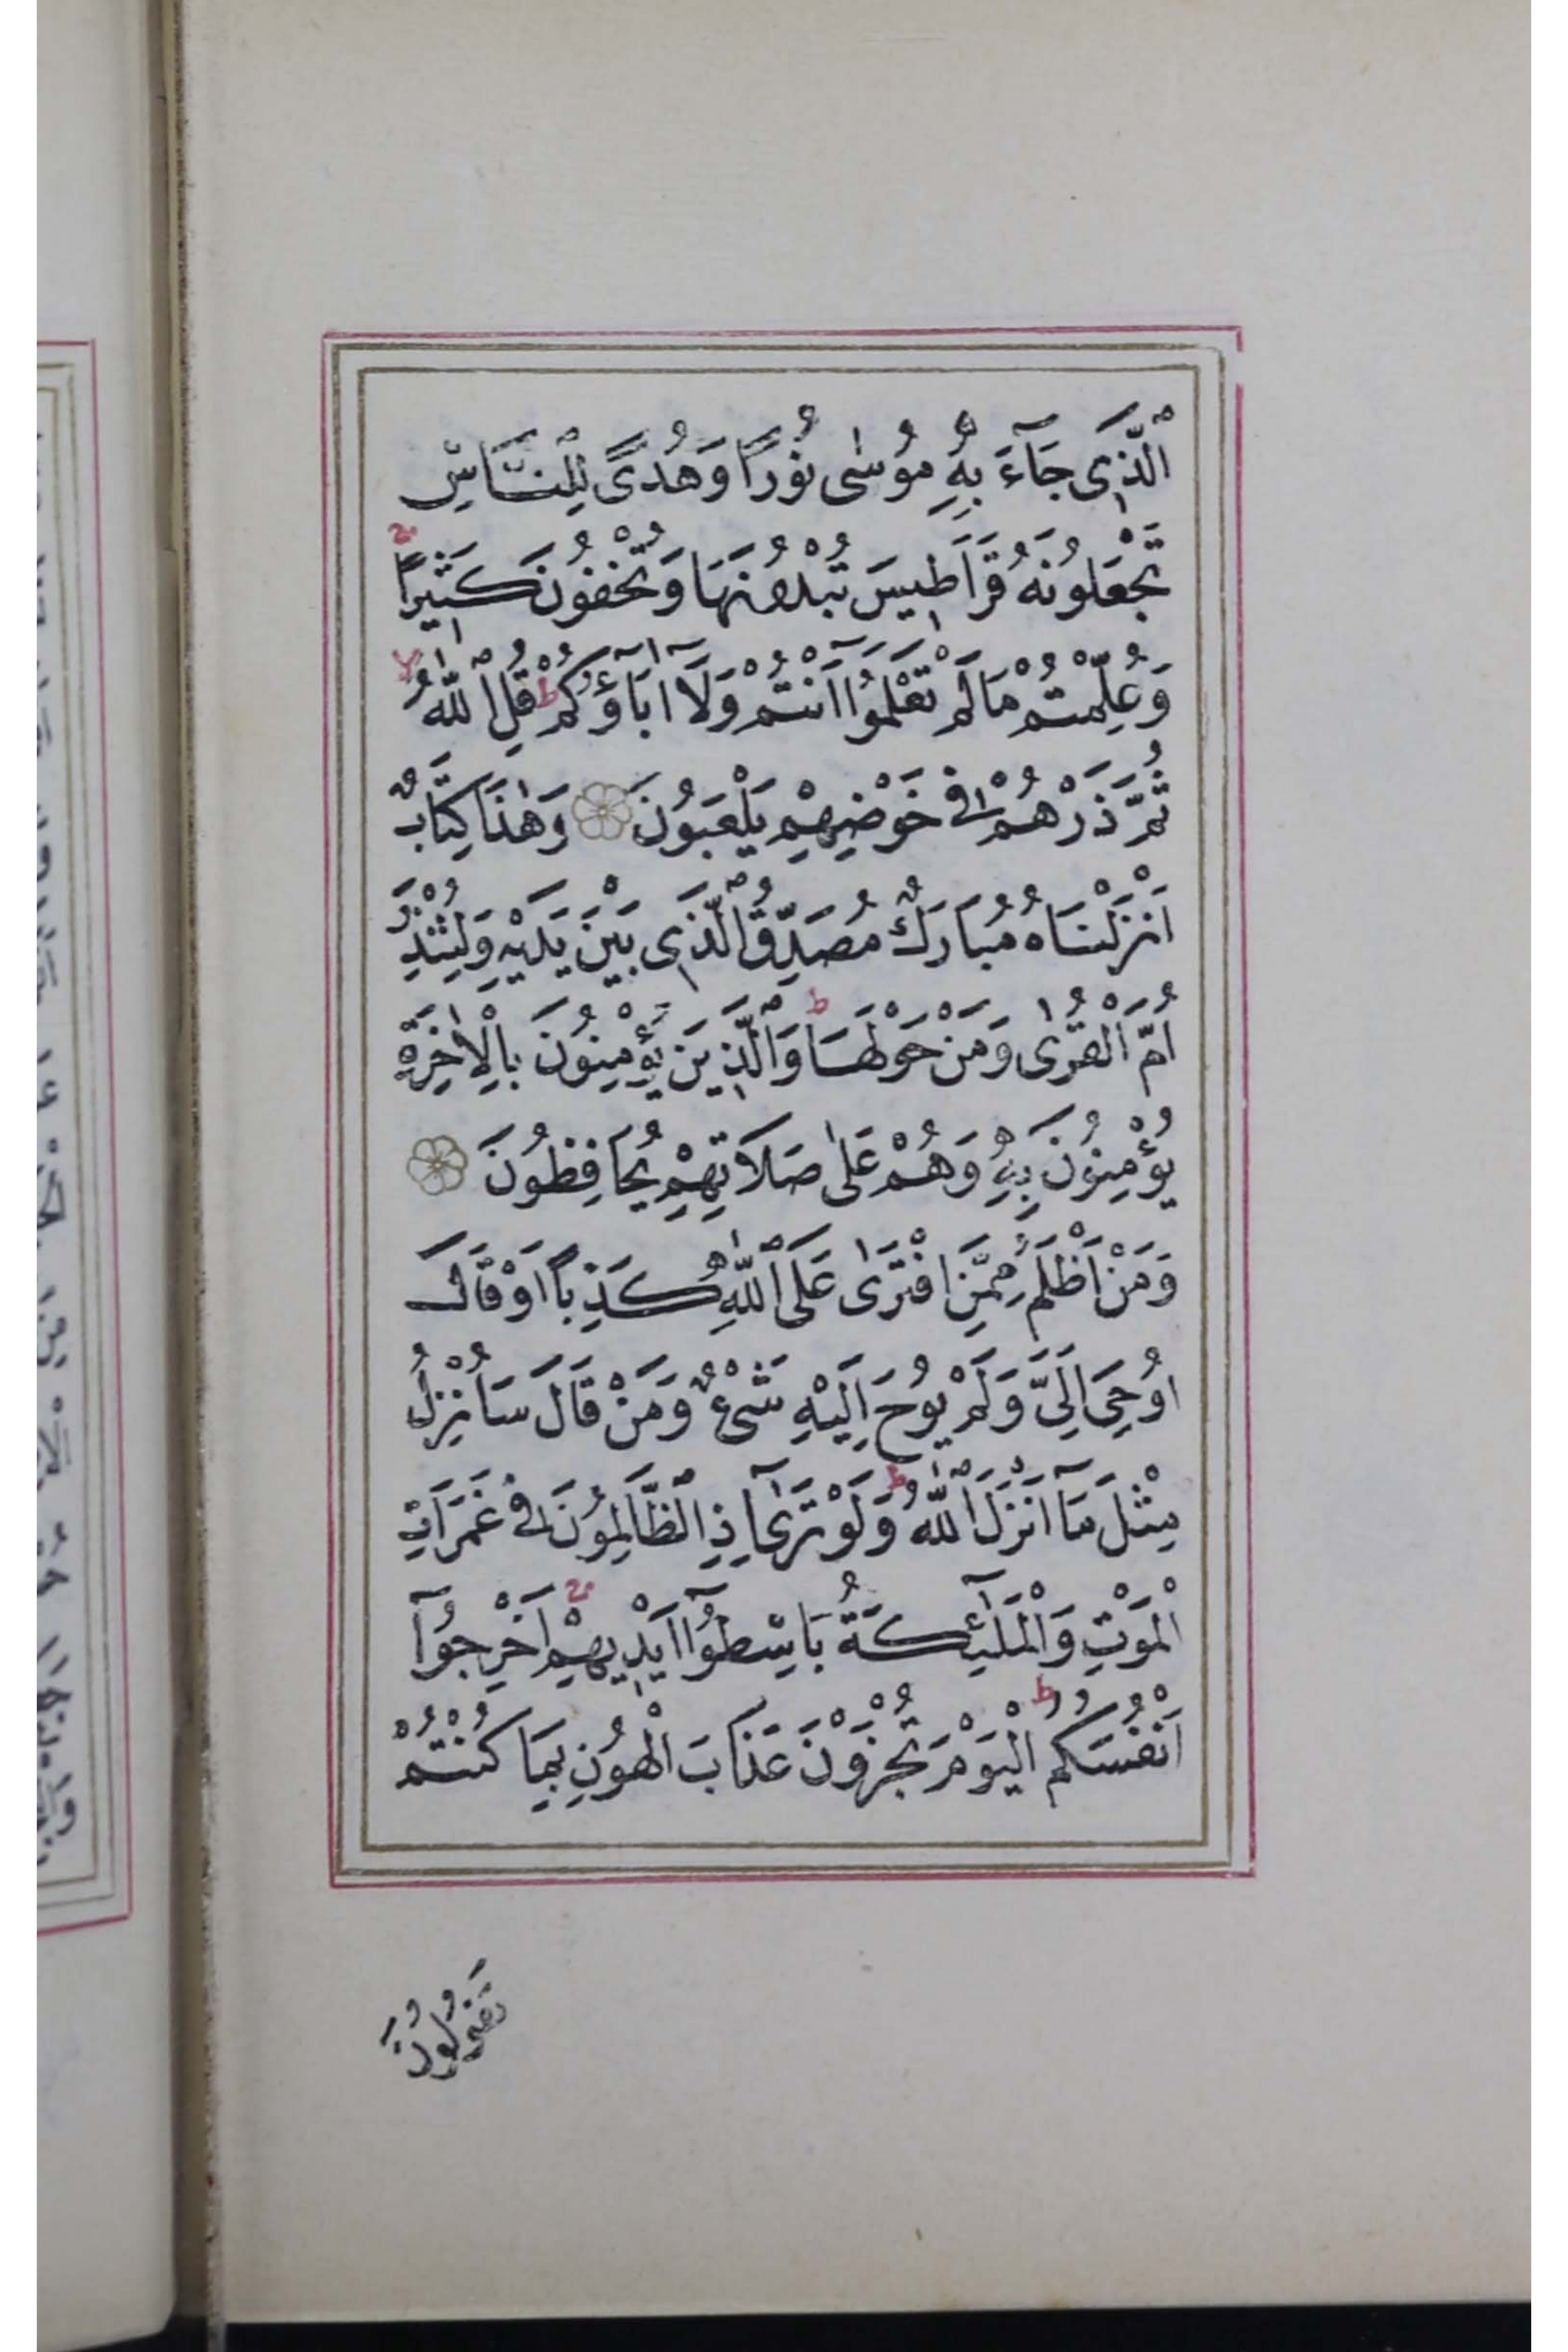 اَلَّذٖى جَٓاءَ بِهٖ مُوسٰى نُورًا وَهُدًى لِلنَّاسِ
تَجْعَلُونَهُ قَرَاطٖيسَ تُبْدُونَهَا وَتُخْفُونَ كَثٖيرًا ج
وَعُلِّمْتُمْ مَالَمْ تَعْلَمُٓوا اَنْتُمْ وَلَٓا اٰبَٓاؤُكُمْ ط قُلِ اللّٰهُ لا
ثُمَّ ذَرْهُمْ فٖى خَوْضِهِمْ يَلْعَبُونَ وَهٰذَا كِتَابٌ
اَنْزَلْنَاهُ مُبَارَكٌ مُصَدِّقُ الَّذٖى بَيْنَ يَدَيْهِ وَلِتُنْذِرَ
اُمَّ الْقُرٰى وَمَنْ حَوْلَهَا ط وَالَّذٖينَ يُؤْمِنُونَ بِالْاٰخِرَةِ
يُؤْمِنُونَ بِهٖ وَهُمْ عَلٰى صَلَاتِهِمْ يُحَافِظُونَ
وَمَنْ اَظْلَمُ مِمَّنِ افْتَرٰى عَلَى اللّٰهِ كَذِبًا اَوْ قَالَ
اُوحِىَ اِلَىَّ وَلَمْ يُوحَ اِلَيْهِ شَىْءٌ وَمَنْ قَالَ سَاُنْزِلُ
مِثْلَ مَٓا اَنْزَلَ اللّٰهُ ط وَلَوْ تَرٰٓى اِذِ الظَّالِمُونَ فٖى غَمَرَاتِ
الْمَوْتِ وَالْمَلٰٓئِكَةُ بَاسِطُٓوا اَيْدٖيهِمْ ج اَخْرِجُٓوا
اَنْفُسَكُمُ ط الْيَوْمَ تُجْزَوْنَ عَذَابَ الْهُونِ بِمَا كُنْتُمْ
تَقُولُونَ